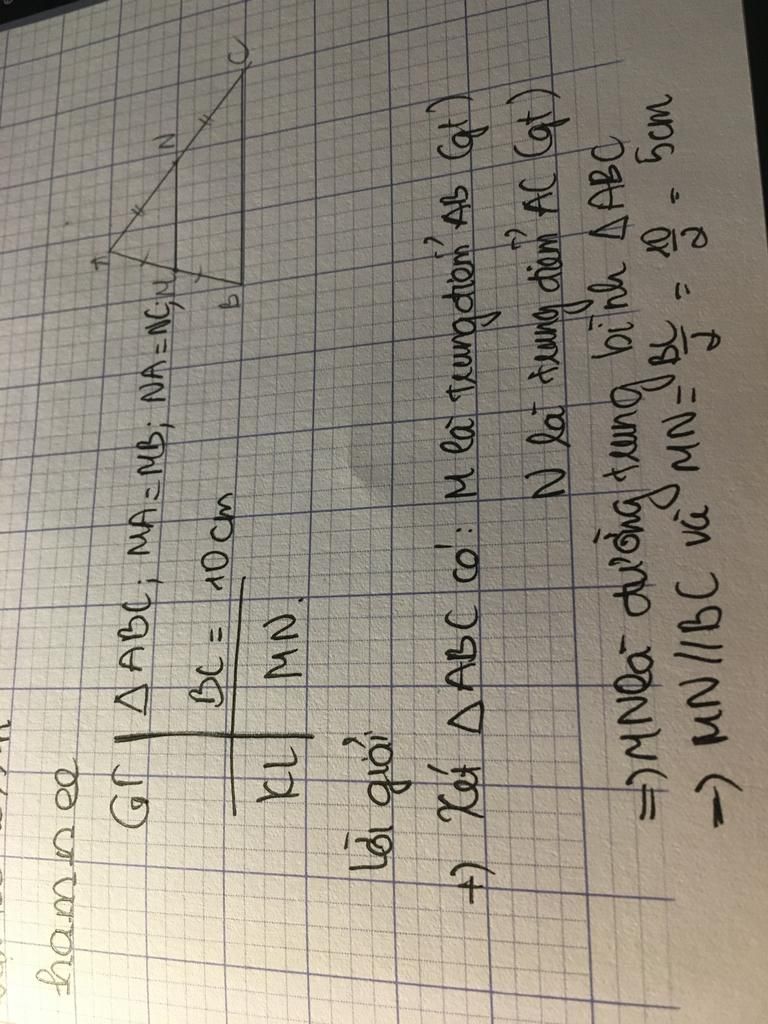 hamnee
GT ΔABC; MA=MB; NA=NC;
BC = 10cm
KL MN.
A
M
N
B
C
Lời giải
+) Xét ΔABC có: M là trung điểm AB (gt)
N là trung điểm AC (gt)
=> MN là đường trung bình ΔABC
=> MN//BC và MN = BC/2 = 10/2 = 5cm